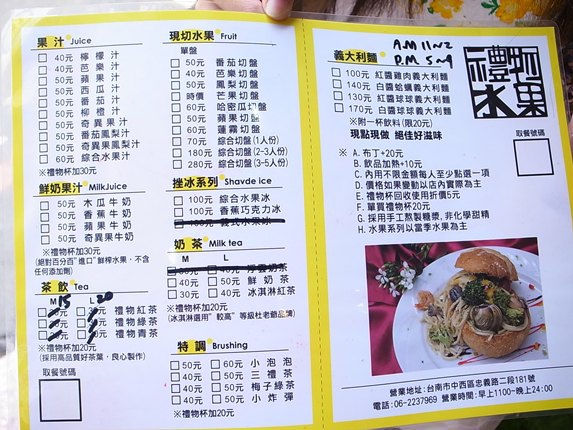 果汁 Juice
40元 檸檬汁
40元 芭樂汁
50元 蘋果汁
50元 西瓜汁
50元 番茄汁
50元 柳橙汁
50元 奇異果汁
50元 番茄鳳梨汁
50元 奇異果鳳梨汁
60元 綜合水果汁
※禮物杯加30元
鮮奶果汁 MilkJuice
50元 木瓜牛奶
50元 香蕉牛奶
50元 蘋果牛奶
50元 奇異果牛奶
※禮物杯加30元
(絕對百分百"進口"鮮榨水果、不含
任何添加劑)
茶飲 Tea
M 15 L 20
禮物紅茶
禮物綠茶
禮物青茶
※禮物杯加20元
(採用高品質好茶葉，良心製作)
取餐號碼
現切水果 Fruit
單盤
50元 番茄切盤
40元 芭樂切盤
50元 鳳梨切盤
時價 芒果切盤
60元 哈密瓜切盤
50元 蘋果切盤
60元 蓮霧切盤
70元 綜合切盤(1人份)
180元 綜合切盤(2-3人份)
280元 綜合切盤(3-5人份)
挫冰系列 Shavde ice
100元 綜合水果冰
100元 香蕉巧克力冰
奶茶 Milk tea
M L
30元 40元 浮雲奶茶
40元 50元 鮮奶茶
30元 40元 冰淇淋紅茶
※禮物杯加20元
(冰淇淋選用"較高"等級杜老爺品牌)
特調 Brushing
50元 60元 小泡泡
40元 50元 三禮茶
40元 50元 梅子綠茶
40元 50元 小炸彈
※禮物杯加20元
義大利麵
A.M 11~2
P.M 5~9
禮物水果
100元 紅醬雞肉義大利麵
140元 白醬蛤蠣義大利麵
130元 紅醬球球義大利麵
170元 白醬球球義大利麵
※附一杯飲料(限20元)
現點現做 絕佳好滋味
取餐號碼
※ A. 布丁+20元
B. 飲品加熱+10元
C. 內用不限金額每人至少點選一項
D. 價格如果變動以店內實際為主
E. 禮物杯回收使用折價5元
F. 單買禮物杯20元
G. 採用手工熬製糖漿, 非化學甜精
H. 水果系列以當季水果為主
營業地址: 台南市中西區忠義路二段181號
電話: 06-2237969 營業時間: 早上1100-晚上24:00